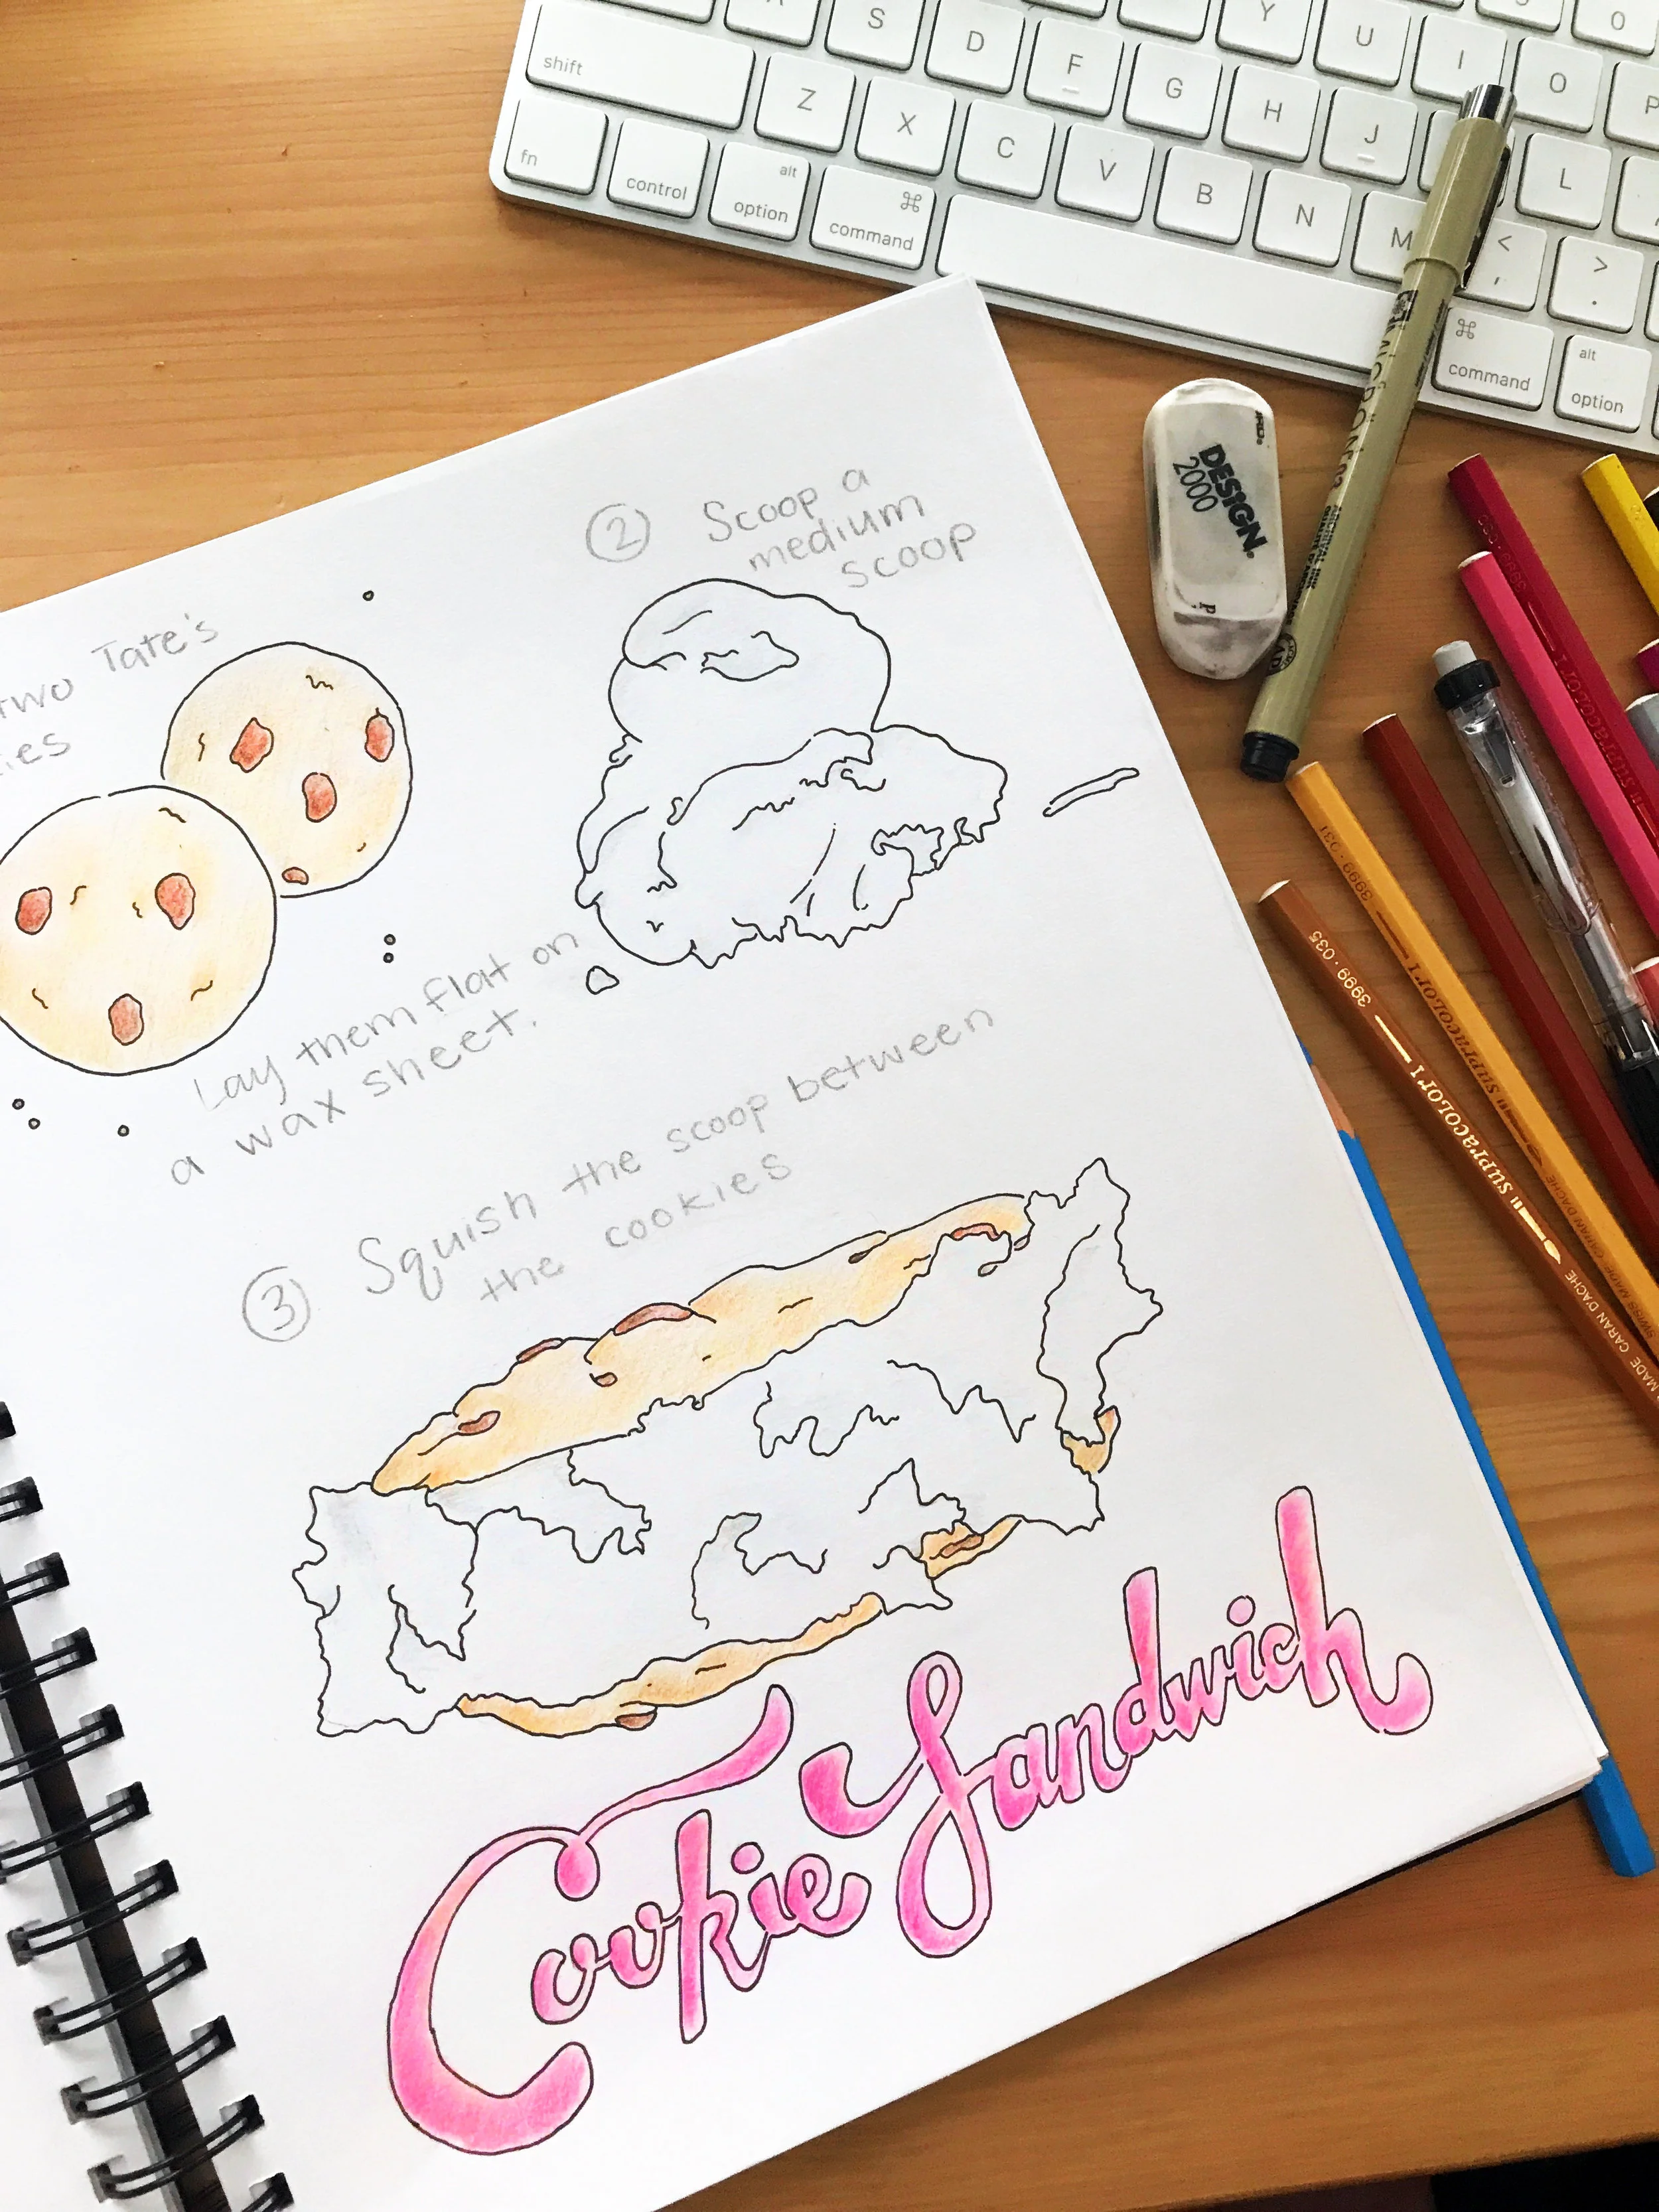 Tate's
two
② Scoop a
medium
scoop
Lay them flat on
a wax sheet.
③ Squish the scoop between
the cookies
Cookie Sandwich
shift
fn
control
alt
option
⌘
command
S
D
F
G
H
J
L
Y
U
I
O
P
Z
X
C
V
B
N
M
<
,
>
.
⌘
command
alt
option
DESIGN.
2000
3999·035
SUPRACOLOR I
CARAN D'ACHE
3999·031
SUPRACOLOR I
CARAN D'ACHE
SWISS MADE